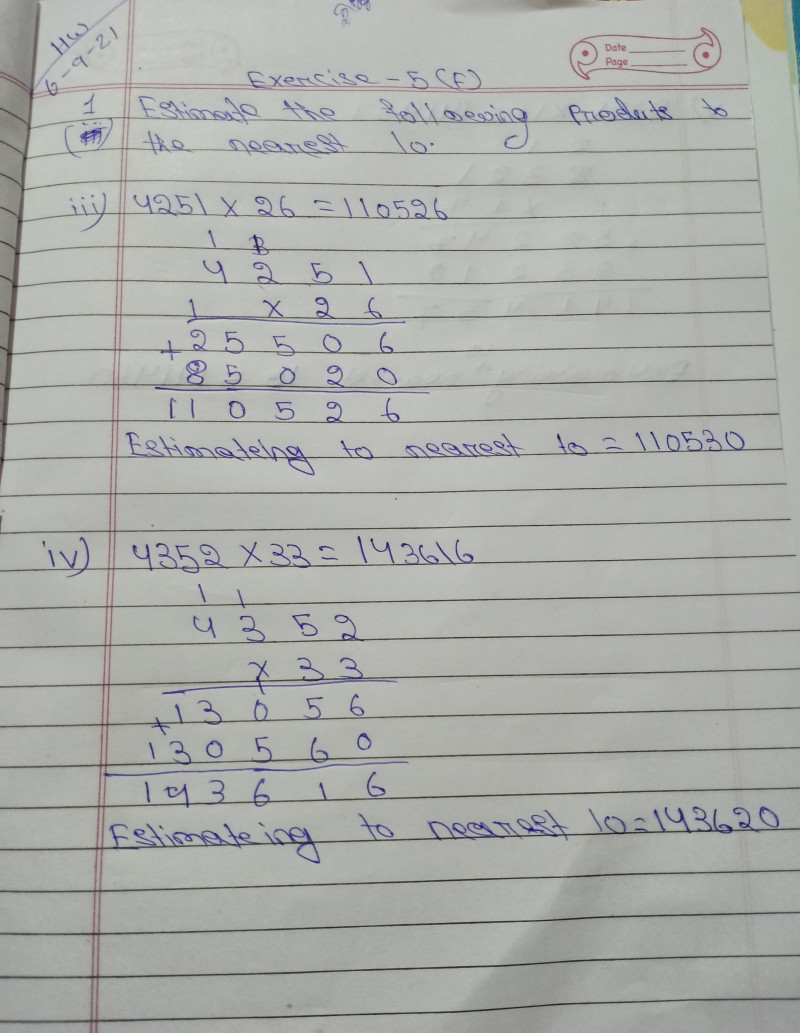 HW
6-9-21
Date
Page
Exercise - 5 (F)
1 Estimate the following Products to
the nearest 10.
iii) 4251 × 26 = 110526
1
4 2 5 1
1 × 2 6
+ 2 5 5 0 6
8 5 0 2 0
1 1 0 5 2 6
Estimateing to nearest 10 = 110530
iv) 4352 × 33 = 143616
1 1
4 3 5 2
× 3 3
+ 1 3 0 5 6
1 3 0 5 6 0
1 4 3 6 1 6
Estimateing to nearest 10 = 143620